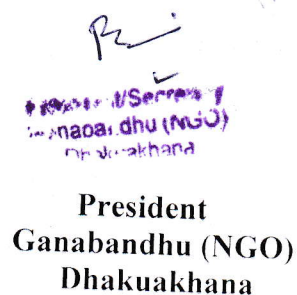 President/Secretary
Ganabandhu (NGO)
Dhakuakhana
President
Ganabandhu (NGO)
Dhakuakhana